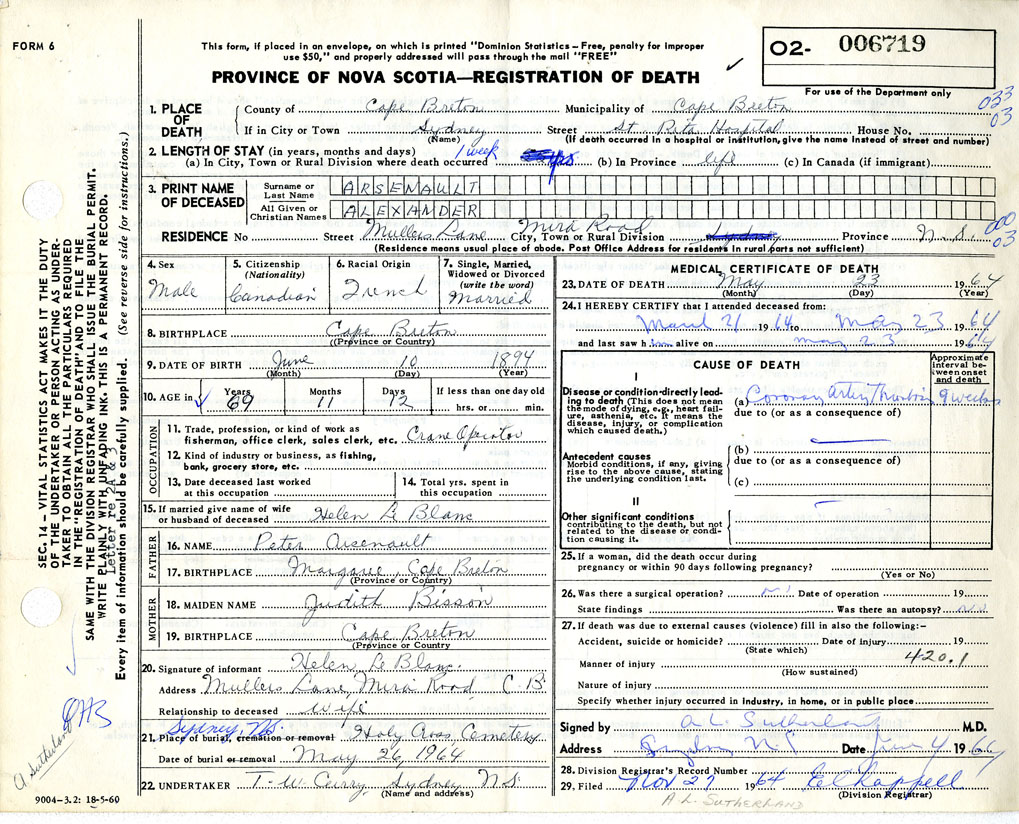 FORM 6
This form, if placed in an envelope, on which is printed "Dominion Statistics – Free, penalty for improper
use $50," and properly addressed will pass through the mail "FREE"
PROVINCE OF NOVA SCOTIA—REGISTRATION OF DEATH
O2- 006719
For use of the Department only
033
03
1. PLACE OF DEATH County of Cape Breton Municipality of Cape Breton
If in City or Town Sydney (Name) Street St. Rita Hospital House No.
(If death occurred in a hospital or institution, give the name instead of street and number)
2. LENGTH OF STAY (in years, months and days)
(a) In City, Town or Rural Division where death occurred 1 week (b) In Province life (c) In Canada (if immigrant)
3. PRINT NAME OF DECEASED Surname or Last Name ARSENAULT
All Given or Christian Names ALEXAMDER
000
03
RESIDENCE No Street Mullers Lane City, Town or Rural Division Mira Road Sydney Province N.S.
(Residence means usual place of abode. Post Office Address for residents in rural parts not sufficient)
4. Sex Male
5. Citizenship (Nationality) Canadian
6. Racial Origin French
7. Single, Married, Widowed or Divorced (write the word) Married
8. BIRTHPLACE Cape Breton
(Province or Country)
9. DATE OF BIRTH June 10 1894
(Month) (Day) (Year)
10. AGE in Years 69 Months 11 Days 12 If less than one day old hrs. or min.
OCCUPATION
11. Trade, profession, or kind of work as fisherman, office clerk, sales clerk, etc. Crane Operator
12. Kind of industry or business, as fishing, bank, grocery store, etc.
13. Date deceased last worked at this occupation
14. Total yrs. spent in this occupation
15. If married give name of wife or husband of deceased Helen Le Blanc
FATHER
16. NAME Peter Arsenault
17. BIRTHPLACE Margaree, Cape Breton
(Province or Country)
MOTHER
18. MAIDEN NAME Judith Bisson
19. BIRTHPLACE Cape Breton
(Province or Country)
20. Signature of informant Helen Le Blanc.
Address Mullers Lane, Mira Road C.B
Relationship to deceased wife
Sydney, N.S.
21. Place of burial, cremation or removal Holy Cross Cemetery
Date of burial or removal May 26, 1964
22. UNDERTAKER T. W. Curry, Sydney NS
(Name and address)
9004–3.2: 18-5-60
MEDICAL CERTIFICATE OF DEATH
23. DATE OF DEATH May 23 1964
(Month) (Day) (Year)
24. I HEREBY CERTIFY that I attended deceased from:
March 21 1964 to May 23 1964
and last saw him alive on May 23 1964
CAUSE OF DEATH
Approximate interval between onset and death
I
Disease or condition directly leading to death (This does not mean the mode of dying, e.g., heart failure, asthenia, etc. It means the disease, injury, or complication which caused death.)
(a) Coronary Artery Thrombosis 9 weeks
due to (or as a consequence of)
Antecedent causes
Morbid conditions, if any, giving rise to the above cause, stating the underlying condition last.
(b)
due to (or as a consequence of)
(c)
II
Other significant conditions
contributing to the death, but not related to the disease or condition causing it.
25. If a woman, did the death occur during
pregnancy or within 90 days following pregnancy?
(Yes or No)
26. Was there a surgical operation? Date of operation 19
State findings Was there an autopsy? no
27. If death was due to external causes (violence) fill in also the following:–
Accident, suicide or homicide? Date of injury 19
(State which)
420.1
Manner of injury
(How sustained)
Nature of injury
Specify whether injury occurred in industry, in home, or in public place
Signed by A L Sutherland M.D.
Address N.S Date June 4 1964
28. Division Registrar's Record Number
29. Filed Nov 27 1964
(Division Registrar)
A. L. SUTHERLAND
SEC. 14 – VITAL STATISTICS ACT MAKES IT THE DUTY
OF THE UNDERTAKER OR PERSON ACTING AS UNDER-
TAKER TO OBTAIN ALL THE PARTICULARS REQUIRED
IN THE "REGISTRATION OF DEATH" AND TO FILE THE
SAME WITH THE DIVISION REGISTRAR WHO SHALL ISSUE THE BURIAL PERMIT.
WRITE PLAINLY WITH UNFADING INK. THIS IS A PERMANENT RECORD.
Letter re 2A & 3
Every item of information should be carefully supplied. (See reverse side for instructions.)
A Sutherland